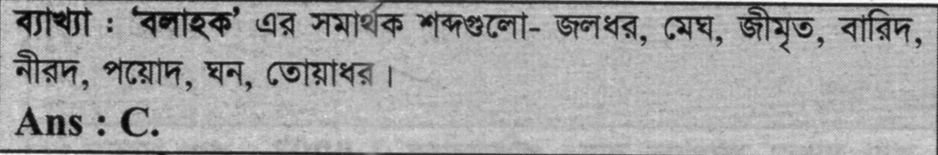 ব্যাখ্যা : ‘বলাহক’ এর সমার্থক শব্দগুলো- জলধর, মেঘ, জীমূত, বারিদ,
নীরদ, পয়োদ, ঘন, তোয়াধর।
Ans : C.